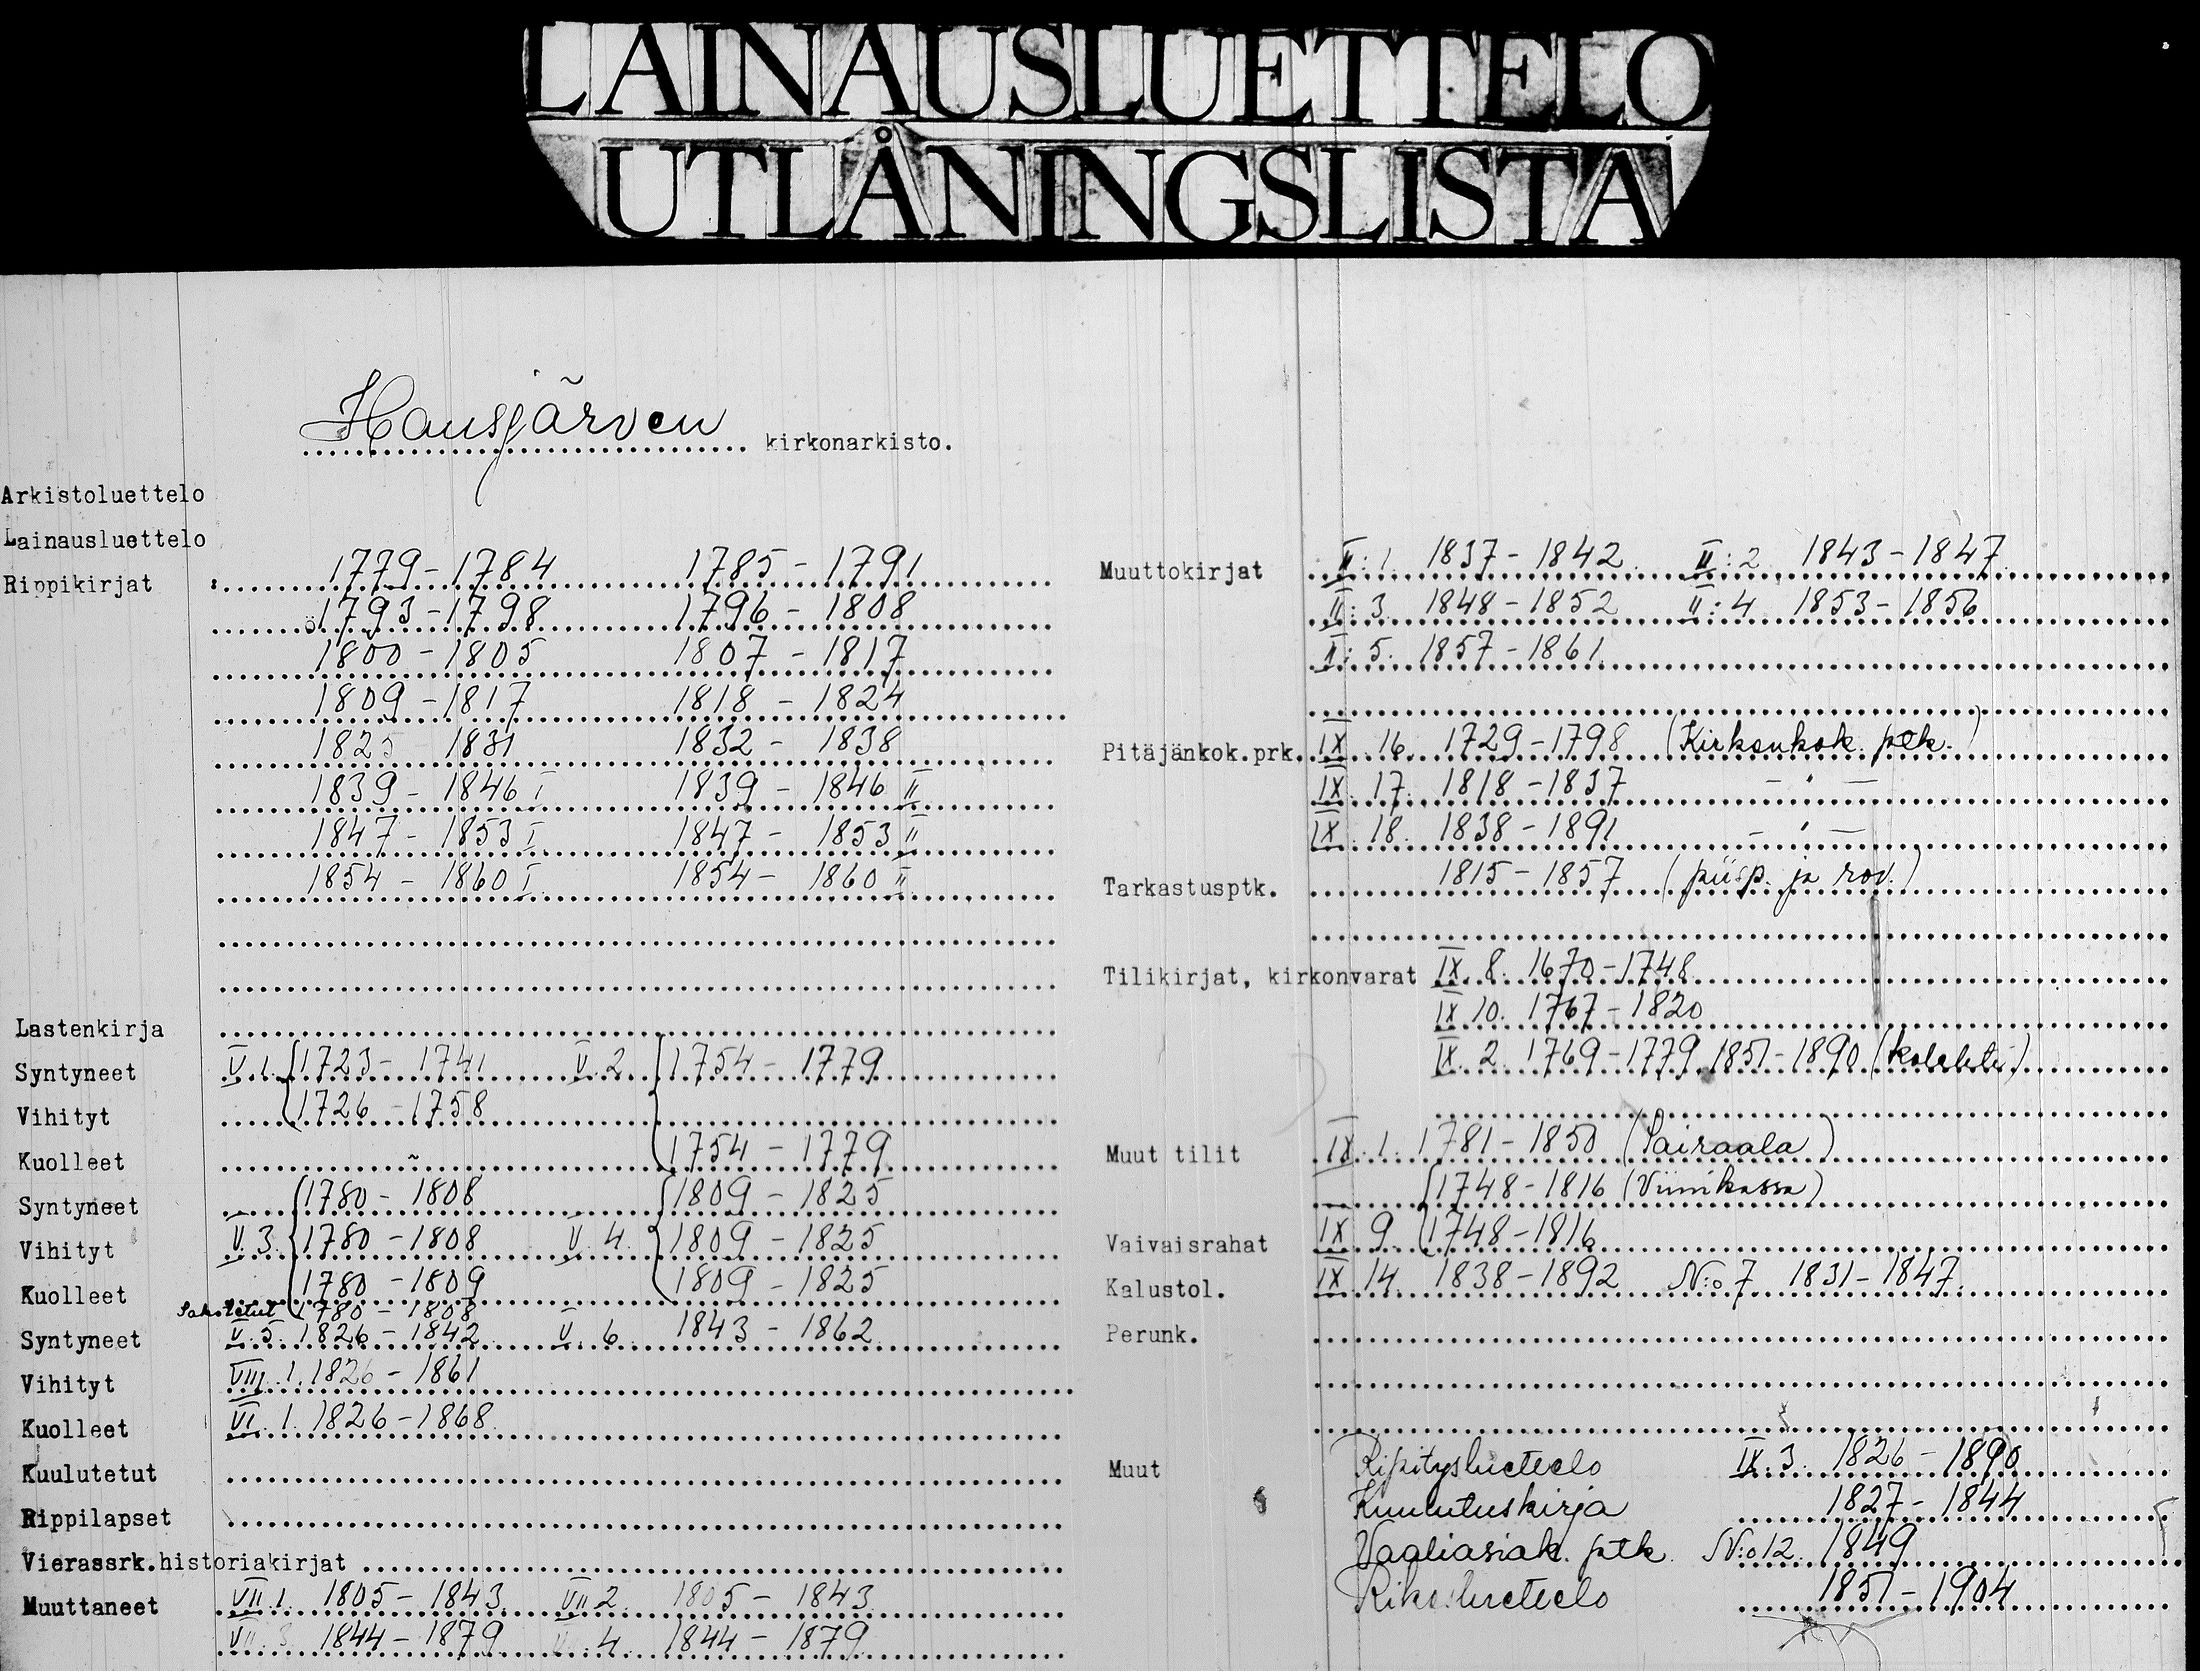 LAINAUSLUETTELO
UTLÅNINGSLISTA
Hausjärven kirkonarkisto.
Arkistoluettelo
Lainausluettelo
Rippikirjat : 1779-1784 1785-1791
1793-1798 1796-1808
1800-1805 1807-1817
1809-1817 1818-1824
1825 1831 1832-1838
1839-1846 I 1839-1846 II
1847-1853 I 1847-1853 II
1854-1860 I 1854-1860 II
Lastenkirja
Syntyneet V.1. 1723-1741 V.2 1754-1779
Vihityt 1726-1758
Kuolleet 1754-1779
Syntyneet 1780-1808 1809-1825
Vihityt V.3. 1780-1808 V.4. 1809-1825
Kuolleet 1780-1809 1809-1825
1780-1808
Syntyneet V.5. 1826-1842 V.6 1843-1862
Vihityt VIII.1. 1826-1861
Kuolleet VI.1. 1826-1868
Kuulutetut
Rippilapset
Vierassrk.historiakirjat
Muuttaneet VII.1. 1805-1843 VII.2. 1805-1843
VII.3 1844-1879 :4. 1844-1879
Muuttokirjat II:1. 1837-1842 II:2 1843-1847
II:3. 1848-1852 II:4 1853-1856
II:5. 1857-1861
Pitäjänkok.prk. IX.16. 1729-1798 (Kirkonkok. ptk.)
IX.17. 1818-1837 - " -
IX.18. 1838-1891 - " -
Tarkastusptk. 1815-1857 (piisp. ja rov.)
Tilikirjat, kirkonvarat IX.8. 1670-1748
IX.10. 1767-1820
IX.2. 1769-1779, 1851-1890 (kolehti)
Muut tilit IX.1. 1781-1850 (Sairaala)
1748-1816 (Viinikassa)
Vaivaisrahat IX.9. 1748-1816
Kalustol. IX.14. 1838-1892 N:o 7 1831-1847.
Perunk.
Muut Ripitysluettelo IX.3. 1826-1890
Kuulutuskirja 1827-1844
Vaaliasiak. ptk. N:o 12. 1849
Rikosluettelo 1851-1904